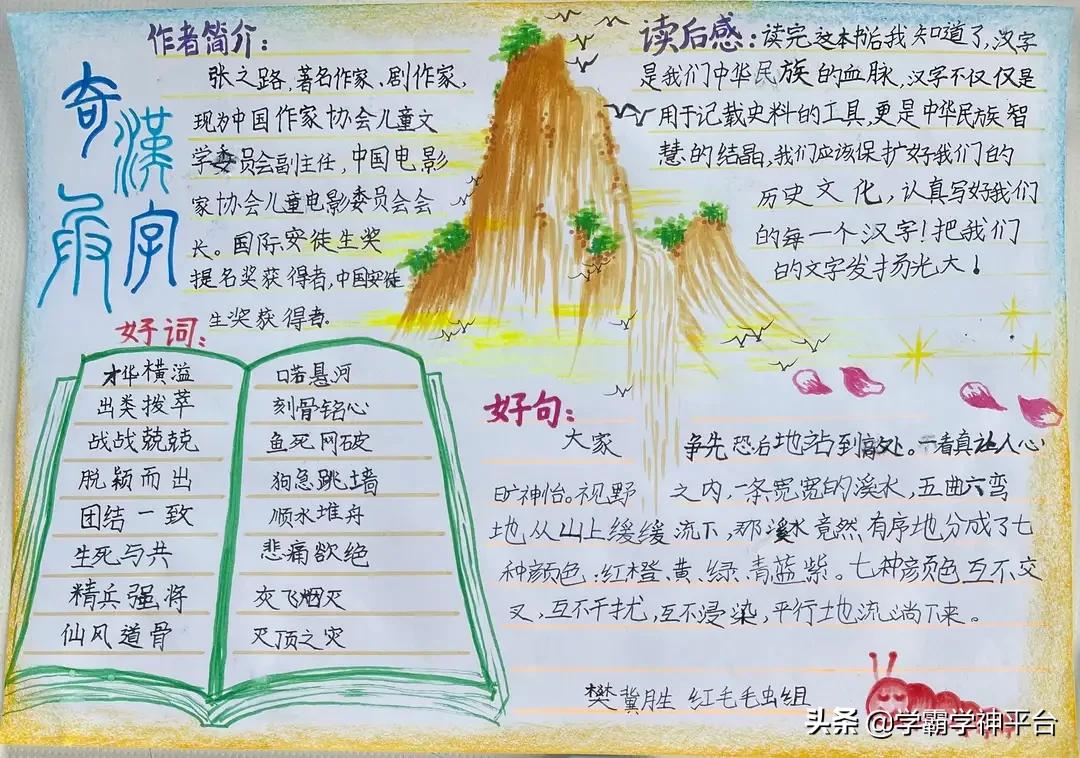 奇
漢
字
作者简介：
张之路，著名作家、剧作家，
现为中国作家协会儿童文
学委员会副主任，中国电影
家协会儿童电影委员会会
长。国际安徒生奖
提名奖获得者，中国安徒
生奖获得者。
读后感：读完这本书后我知道了，汉字
是我们中华民族的血脉，汉字不仅仅是
用于记载史料的工具，更是中华民族智
慧的结晶，我们应该保护好我们的
历史文化，认真写好我们
的每一个汉字！把我们
的文字发扬光大！
好词：
才华横溢
出类拨萃
战战兢兢
脱颖而出
团结一致
生死与共
精兵强将
仙风道骨
口若悬河
刻骨铭心
鱼死网破
狗急跳墙
顺水堆舟
悲痛欲绝
灰飞烟灭
灭顶之灾
好句：
大家 争先恐后地站到高处。一看真让人心
旷神怡。视野 之内，一条宽宽的溪水，五曲六弯
地从山上缓缓流下，那溪水竟然有序地分成了七
种颜色：红橙、黄、绿、青蓝紫。七种颜色互不交
叉，互不干扰，互不浸染，平行地流淌下来。
樊冀胜 红毛毛虫组
头条 @学霸学神平台